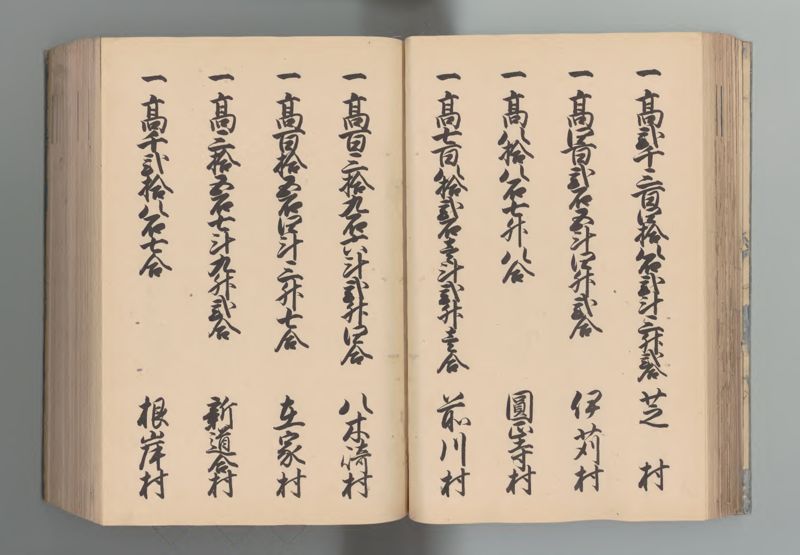 一 高弐千三百四拾八石弐斗三升弐合 芝村
一 高四百弐石五斗四升弐合 伊苅村
一 高八拾八石七升八合 圓正寺村
一 高七百八拾弐石壱斗弐升壱合 前川村
一 高百三拾九石六斗弐升四合 八木崎村
一 高百拾五石四斗三升七合 在家村
一 高三拾五石七斗九升弐合 新道合村
一 高千弐拾八石七合 根岸村